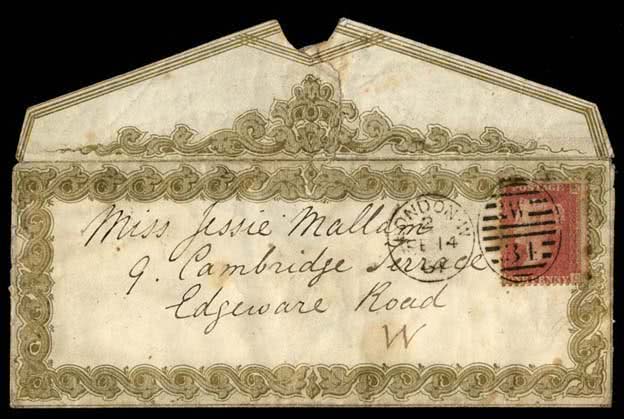 Miss Jessie Mallam
9. Cambridge Terrace
Edgeware Road
W
LONDON·W
2
FE 14
W
31
POSTAGE